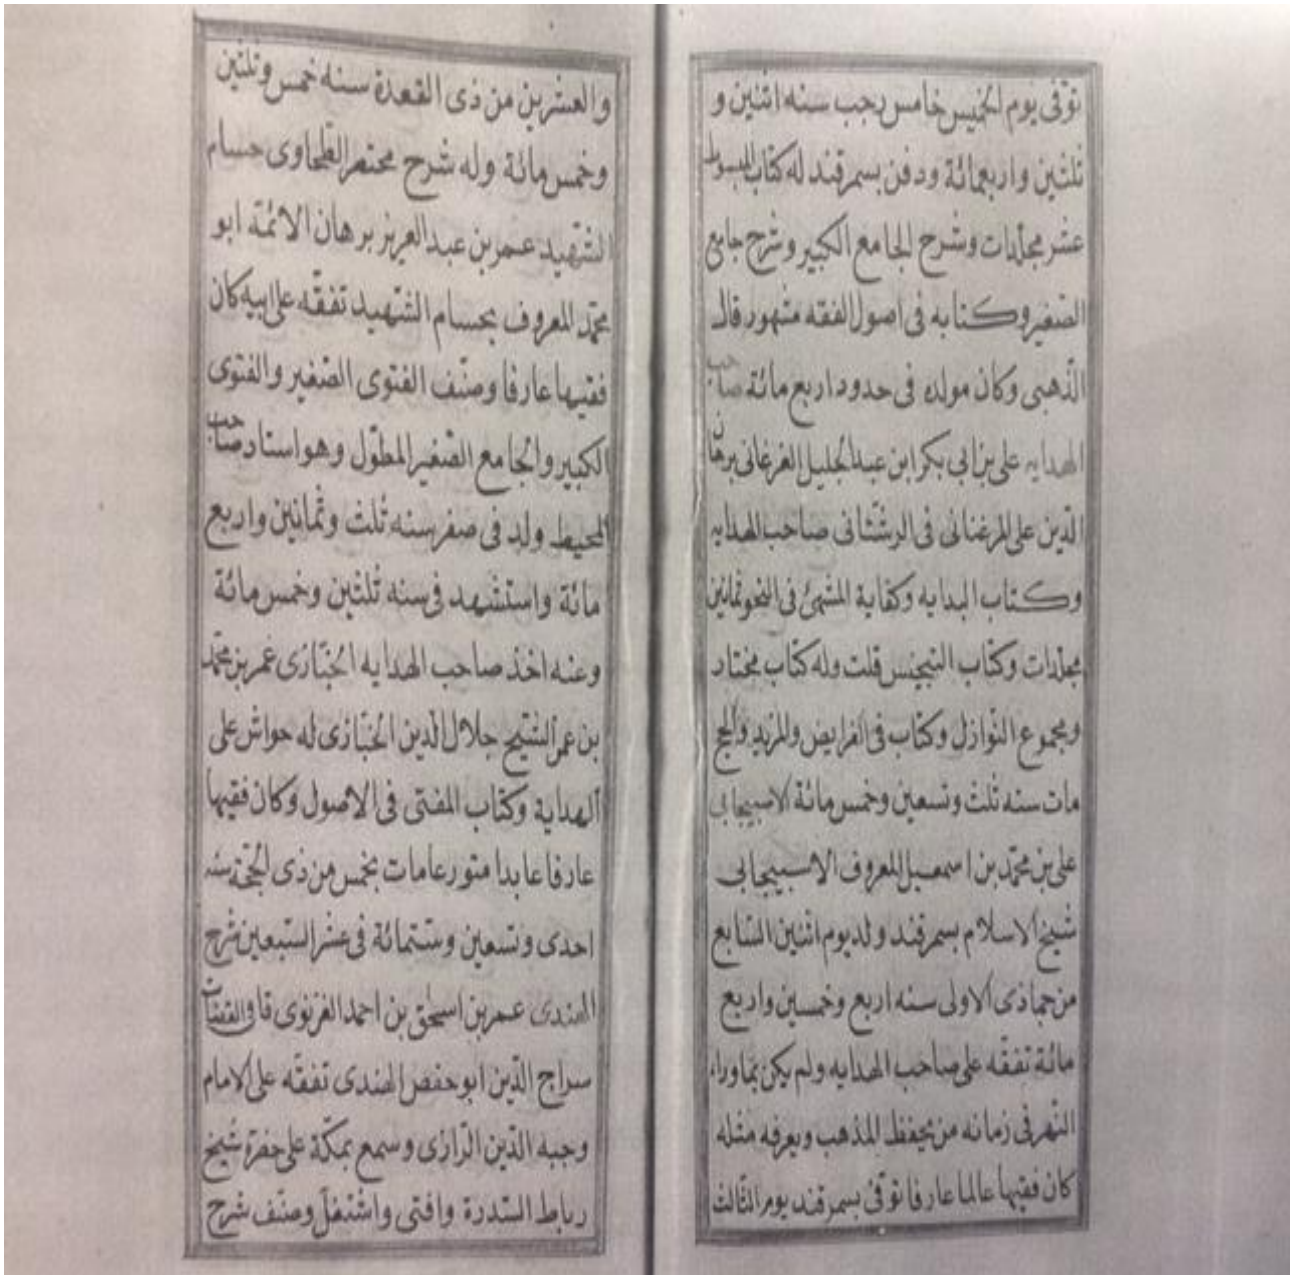 توفى يوم الخميس خامس رجب سنه اثنين و
ثلثين واربعمائة ودفن بسمرقند له كتاب المبسوط
عشر مجلدات وشرح الجامع الكبير وشرح جامع
الصغير وكتابه فى اصول الفقه مشهور قال
الذهبى وكان مولده فى حدود اربع مائة صاحب
الهدايه على بن ابى بكر ابن عبد الجليل الفرغانى برهان
الدين على المرغنانى فى الرشتانى صاحب الهدايه
وكتاب البدايه وكفاية المنتهى فى النحو ثمانين
مجلدات وكتاب التجنيس قلت وله كتاب مختار
ومجموع النوازل وكتاب فى الفرايض والمزيد والحج
مات سنه ثلث وتسعين وخمس مائة الاسبيجابى
على بن محمد بن اسمعيل المعروف الاسبيجابى
شيخ الاسلام بسمرقند ولد يوم اثنين السابع
من جماذى الاولى سنه اربع وخمسين واربع
مائة تفقه على صاحب الهدايه ولم يكن بماوراء
النهر فى زمانه من يحفظ المذهب ويعرفه مثله
كان فقيها عالما عارفا توفى بسمرقند يوم الثالث
والعشرين من ذى القعدة سنه خمس وثلثين
وخمس مائة وله شرح مختصر الطحاوى حسام
الشهيد عمر بن عبد العزيز برهان الائمة ابو
محمد المعروف بحسام الشهيد تفقه على ابيه كان
فقيها عارفا وصنف الفتوى الصغير والفتوى
الكبير والجامع الصغير المطول وهو استاد صاحب
المحيط ولد فى صفر سنه ثلث وثمانين واربع
مائة واستشهد فى سنه ثلثين وخمس مائة
وعنه اخذ صاحب الهدايه الخبازى عمر بن محمد
بن عمر الشيخ جلال الدين الخبازى له حواش على
الهداية وكتاب المفتى فى الاصول وكان فقيها
عارفا عابدا متورعا مات بخمس من ذى الحجة سنه
احدى وتسعين وستمائة فى عشر السبعين شرح
الهندى عمر بن اسحق بن احمد الغزنوى قاضى القضات
سراج الدين ابو حفص الهندى تفقه على الامام
وجيه الدين الرازى وسمع بمكة على خضرة شيخ
رباط السدرة وافتى واشتغل وصنف شرح